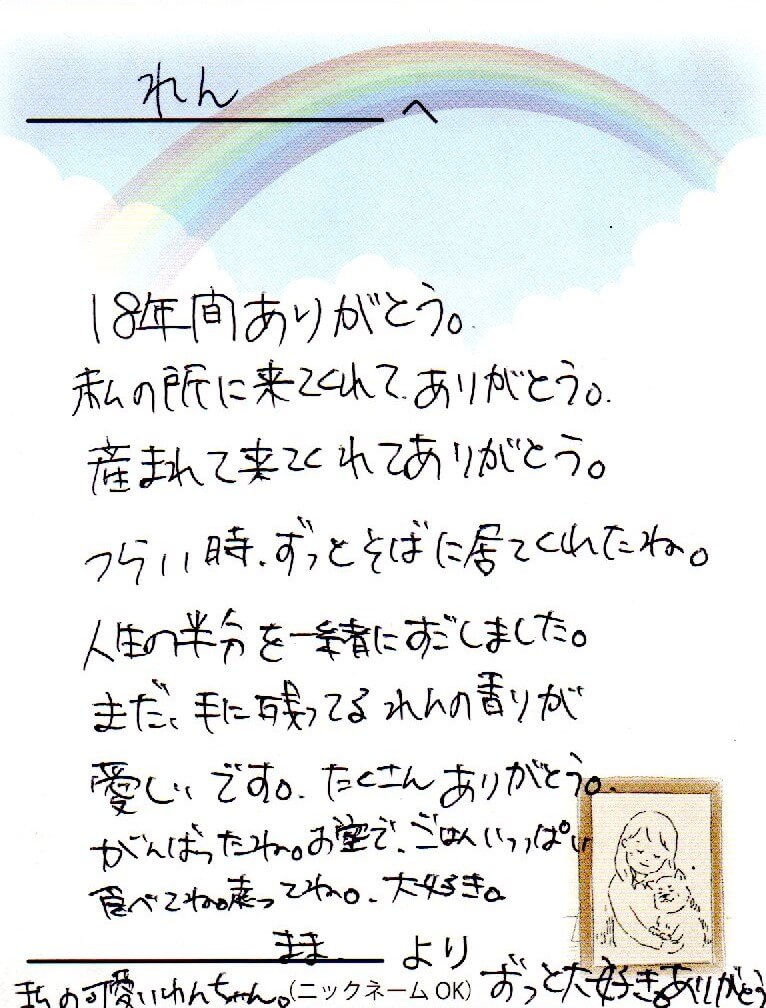 れん
へ
18年間ありがとう。
私の所に来てくれてありがとう。
産まれて来てくれてありがとう。
つらい時、ずっとそばに居てくれたね。
人生の半分を一緒にすごしました。
まだ、手に残ってるれんの香りが
愛しいです。たくさんありがとう。
がんばったね。お空で、ごはんいっぱい
食べてね。待ってね。大好き。
まま より
私の可愛いれんちゃん。(ニックネーム OK) ずっと大好き。ありがとう